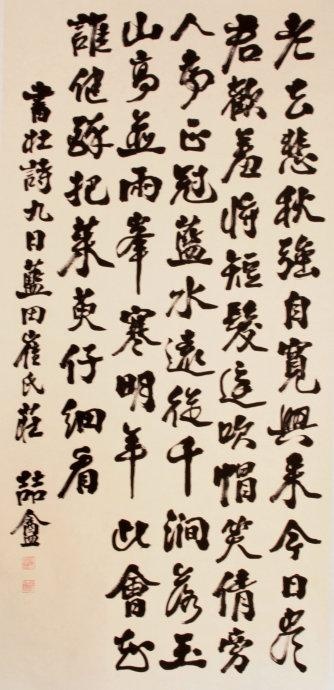 老去悲秋強自寬興來今日盡
君歡羞將短髮還吹帽笑倩旁
人為正冠藍水遠從千澗落玉
山高並兩峯寒明年此會知
誰健醉把茱萸仔細看
書杜詩九日藍田崔氏莊 喆盦